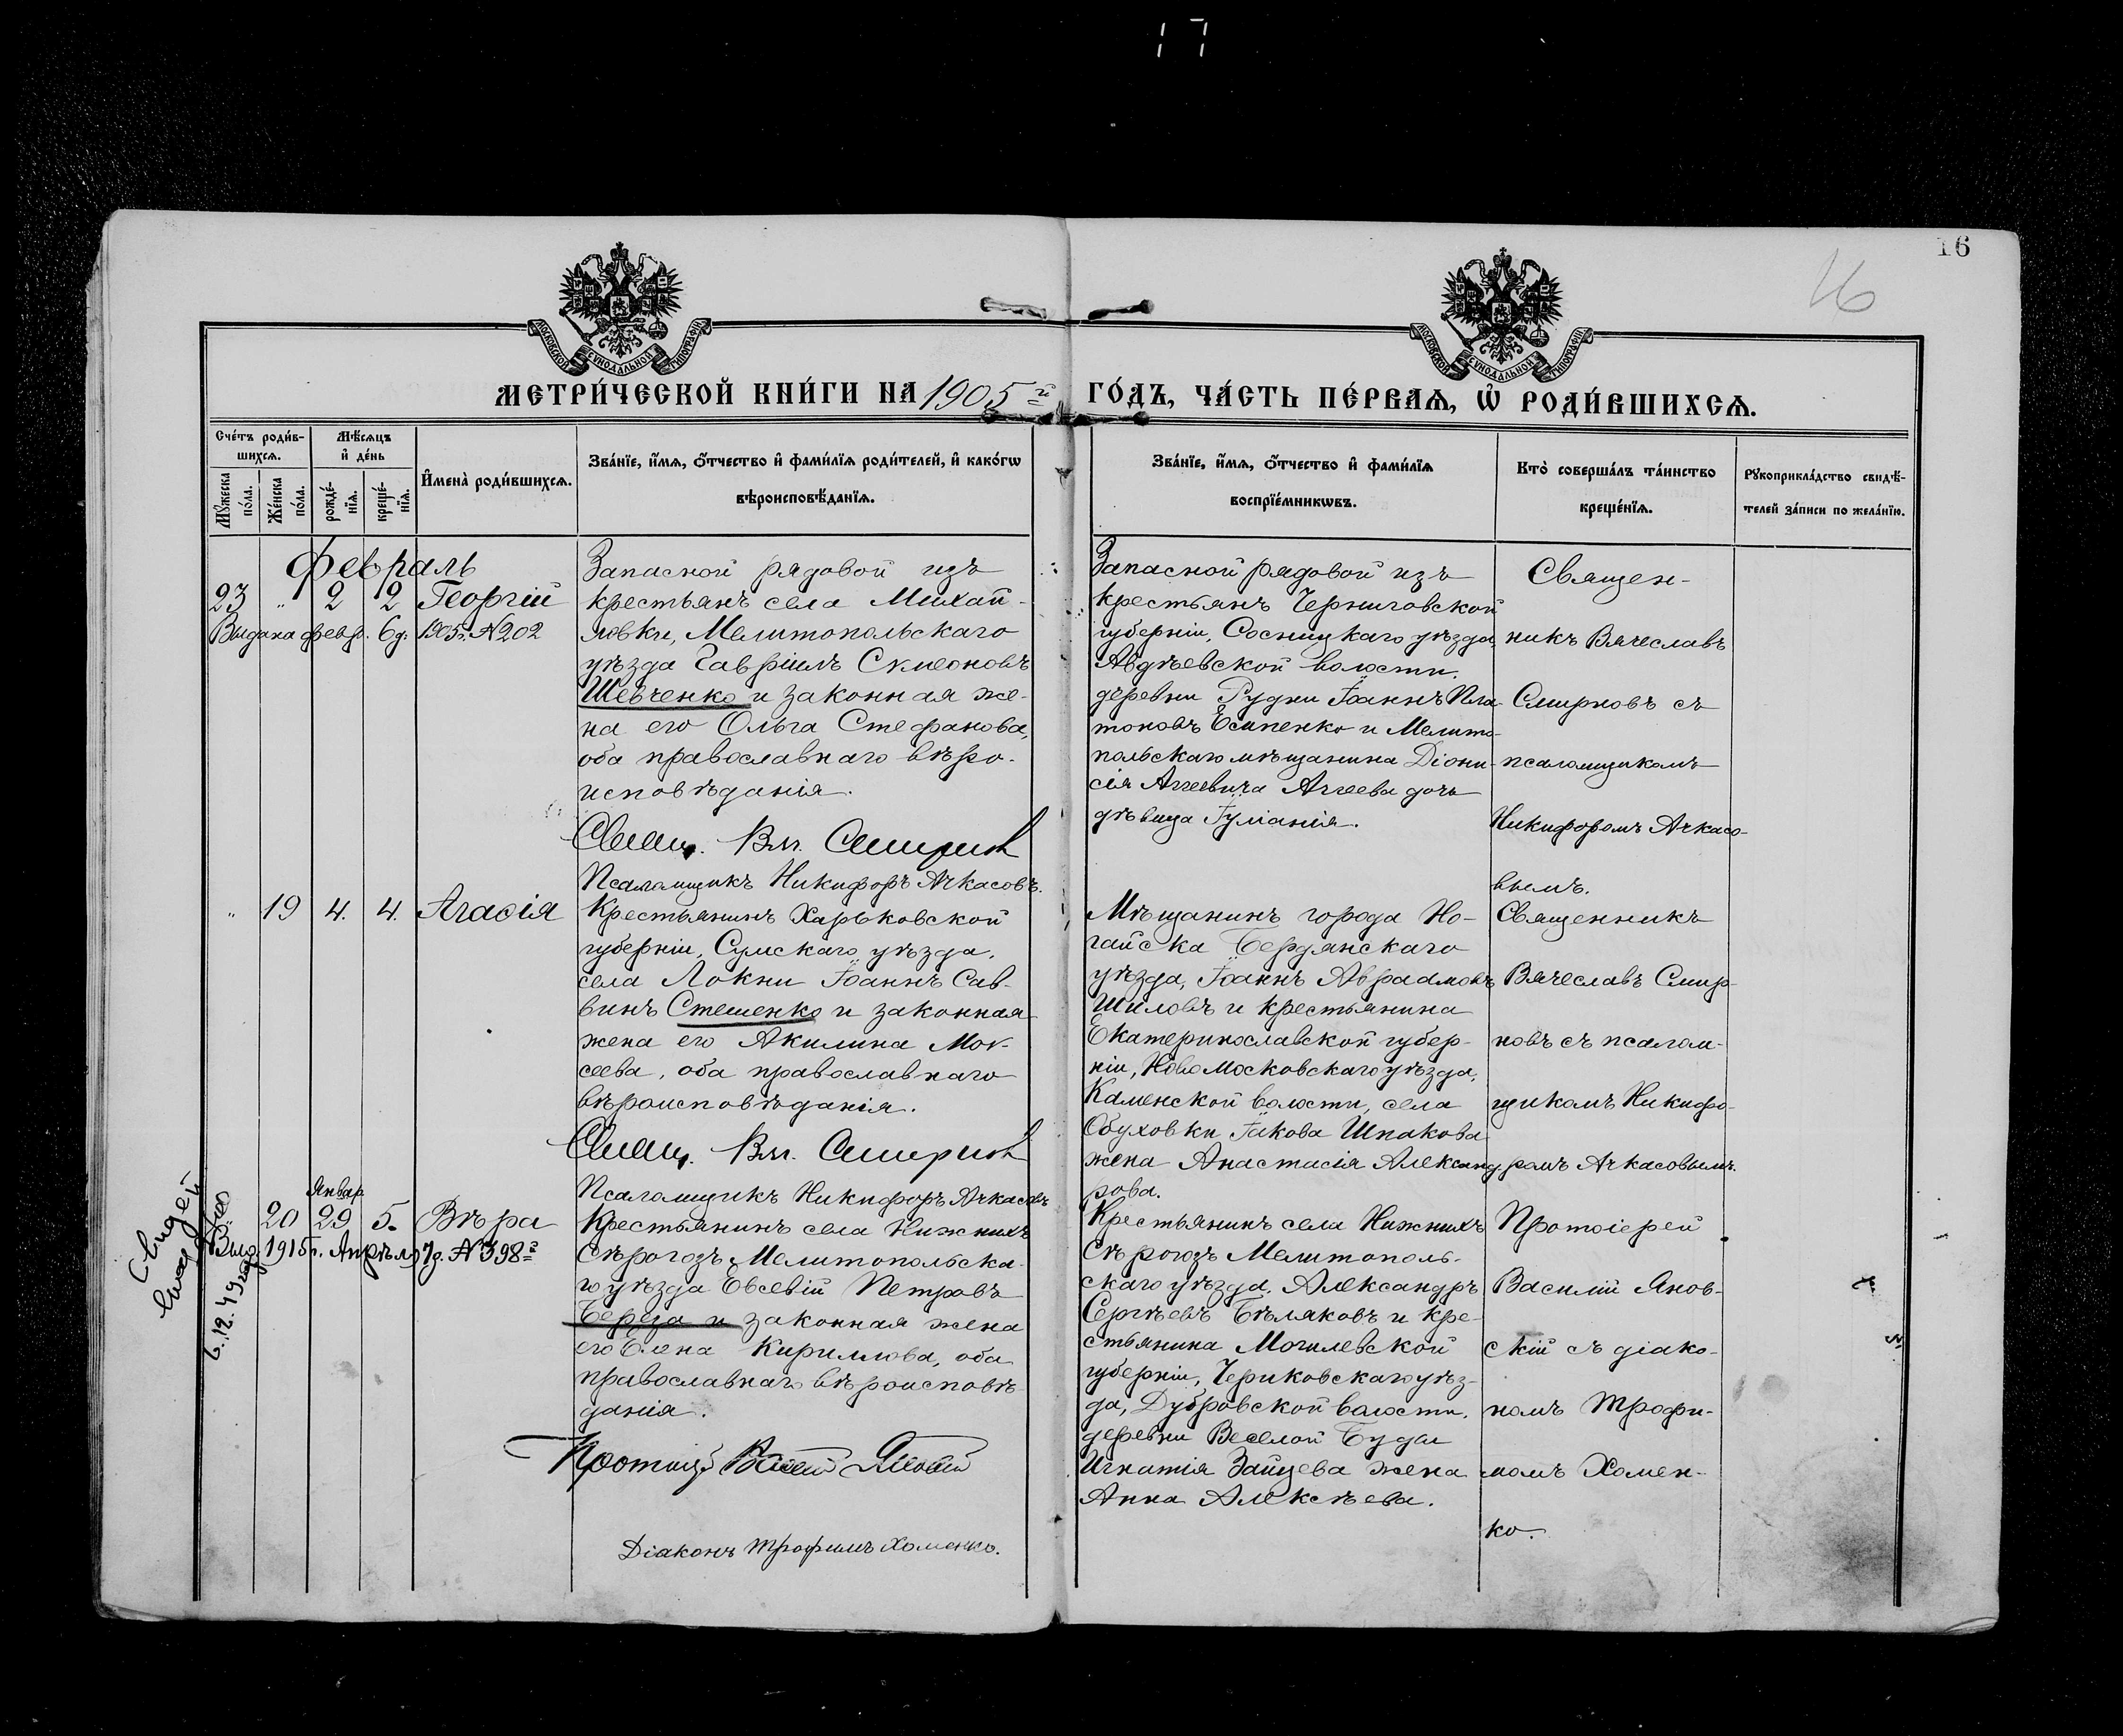 17
16
16
МОСКОВСКОЙ СѴНОДАЛЬНОЙ ТИПОГРАФІИ
МОСКОВСКОЙ СѴНОДАЛЬНОЙ ТИПОГРАФІИ
МЕТРИ́ЧЕСКОЙ КНИ́ГИ НА 1905й ГО́ДЪ, ЧА́СТЬ ПЕ́РВАѦ, Ѡ҆ РОДИ́ВШИХСѦ.
Сче́тъ роди́в-
шихсѧ.
Мꙋ́жеска по́ла.
Же́нска по́ла.
Мѣ́сѧцъ
и҆ де́нь
рожде́-
нїѧ.
креще́-
нїѧ.
И҆мена̀ роди́вшихсѧ.
Зва́нїе, и҆́мѧ, ѻ҆́тчество и҆ фами́лїѧ роди́телей, и҆ како́гѡ
вѣроисповѣ́данїѧ.
Зва́нїе, и҆́мѧ, ѻ҆́тчество и҆ фами́лїѧ
воспрїе́мникѡвъ.
Кто̀ соверша́лъ та́инство
креще́нїѧ.
Рꙋкоприкла́дство свидѣ́-
телей за́писи по жела́нїю.
Февраль
23 " 2 2 Георгій
Выдана февр. 6 д. 1905 г. № 202
Запасной рядовой изъ
крестьянъ села Михай-
ловки, Мелитопольскаго
уѣзда Гавріилъ Симеоновъ
Шевченко и законная же-
на его Ольга Стефанова,
оба православнаго вѣро-
исповѣданія.
Свящ. Вяч. Смирнов
Псаломщикъ Никифоръ Ачкасовъ.
Запасной рядовой изъ
крестьянъ Черниговской
губерніи, Сосницкаго уѣзда,
Авдѣевской волости,
деревни Рудни Іоаннъ Пла-
тоновъ Есипенко и Мелито-
польскаго мѣщанина Діони-
сія Аггеевича Аггеева дочь
дѣвица Іуліанія.
Священ-
никъ Вячеславъ
Смирновъ съ
псаломщикомъ
Никифоромъ Ачкасо-
вымъ.
" 19 4. 4. Агаѳія
Крестьянинъ Харьковской
губерніи, Сумскаго уѣзда,
села Локни Іоаннъ Сав-
винъ Стешенко и законная
жена его Акилина Мои-
сеева, оба православнаго
вѣроисповѣданія.
Свящ. Вяч. Смирнов
Псаломщикъ Никифоръ Ачкасовъ
Мѣщанинъ города Но-
гайска Бердянскаго
уѣзда, Іоаннъ Авраамовъ
Шиловъ и крестьянина
Екатеринославской губер-
ніи, Новомосковскаго уѣзда,
Каменской волости, села
Обуховки Іакова Шпакова
жена Анастасія Александ-
рова.
Священникъ
Вячеславъ Смир-
новъ съ псалом-
щикомъ Никифо-
ромъ Ачкасовымъ.
Январ.
20 29 5. Вѣра
Выд. 1915 г. Апрѣля 7 д. № 398
6.12.49 года
Крестьянинъ села Нижнихъ
Сѣрогозъ Мелитопольска-
го уѣзда Евсевій Петровъ
Береза и законная жена
его Елена Кириллова, оба
православнаго вѣроисповѣ-
данія.
Діаконъ Трофимъ Хоменко.
Крестьянинъ села Нижнихъ
Сѣрогозъ Мелитополь-
скаго уѣзда, Александръ
Сергѣевъ Бѣляковъ и кре-
стьянина Могилевской
губерніи, Чериковскаго уѣз-
да, Дубровской волости,
деревни Веселой Буды
Игнатія Зайцева жена
Анна Алексѣева.
Протоіерей
Василій Янов-
скій съ діако-
номъ Трофи-
момъ Хомен-
ко.